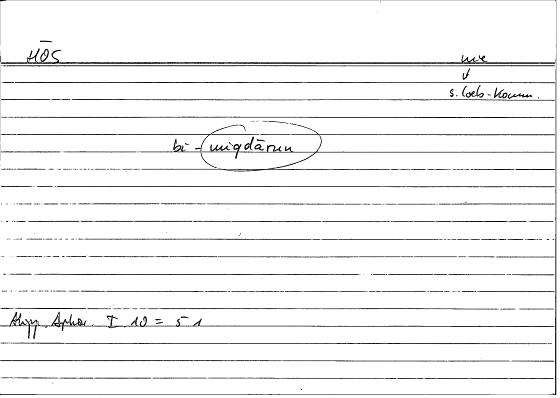 HŌS
me
↓
s. Loeb-Komm.
bi-miqdārun
Hipp. Aphor. I 10 = 5 1